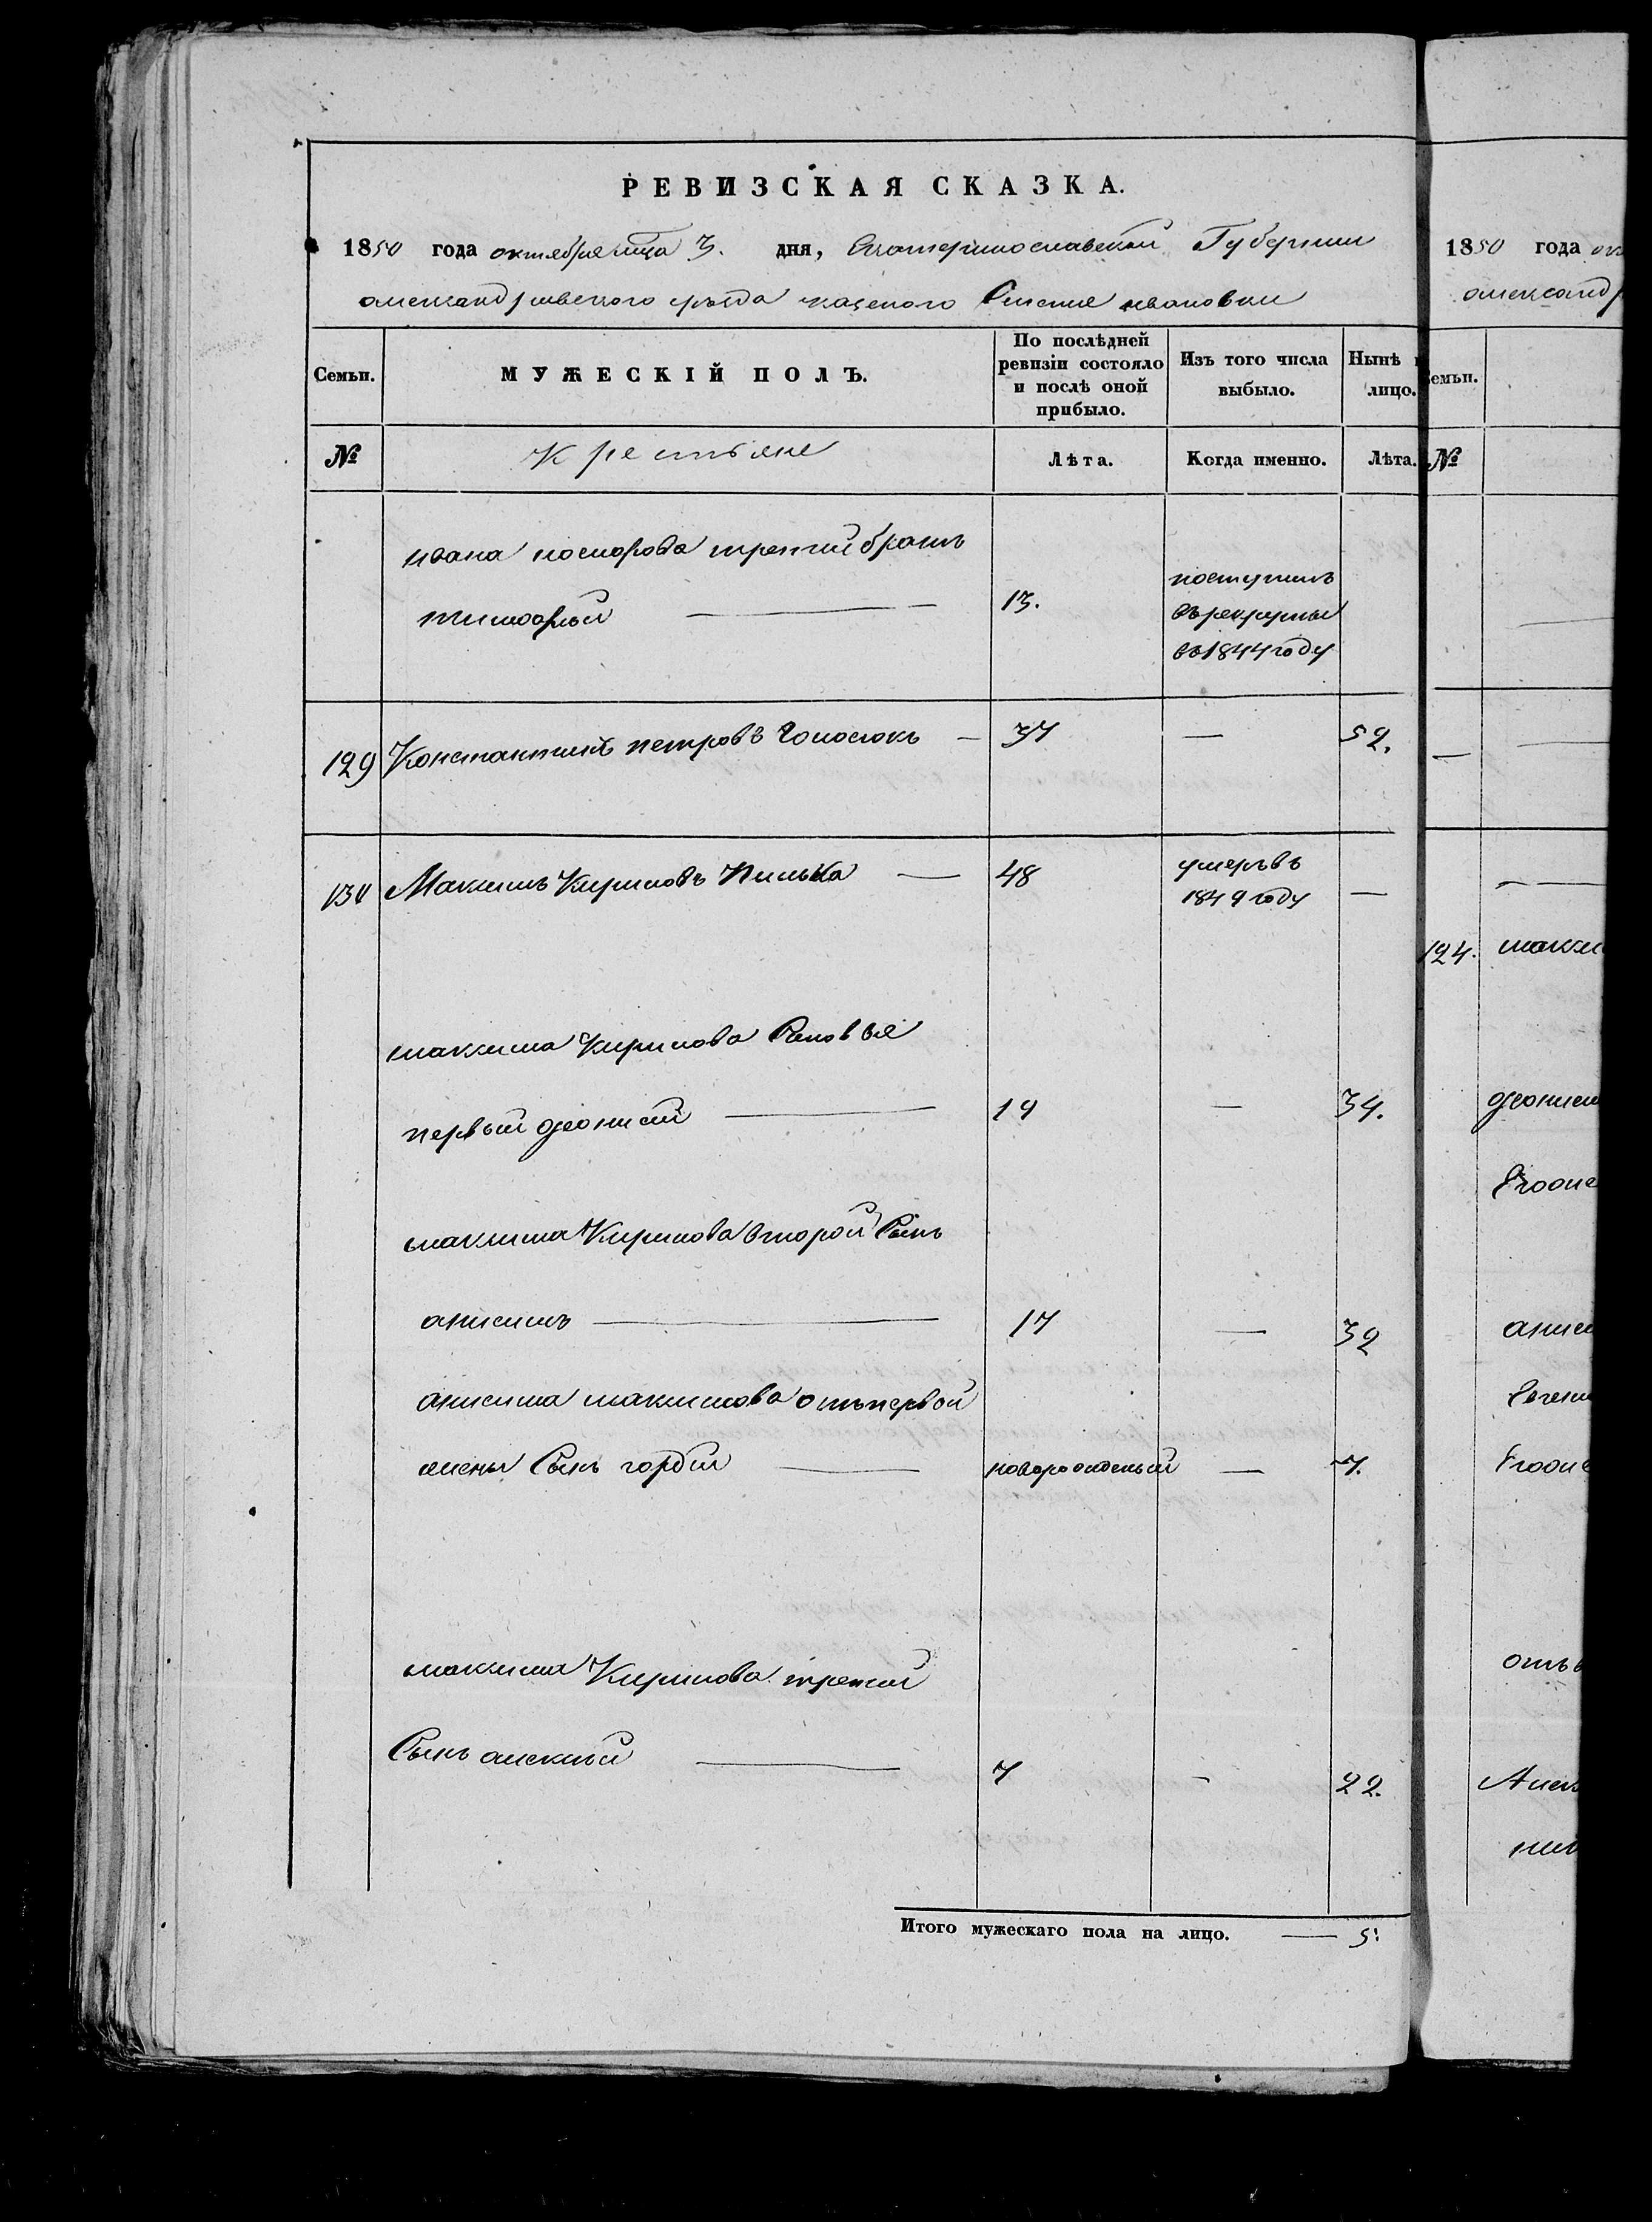 РЕВИЗСКАЯ СКАЗКА.
1850 года октября мца 3. дня, Екатеринославской Губернии
александровского уезда казеного Селение ивановки
Семьи.
МУЖЕСКІЙ ПОЛЪ.
По послѣдней ревизіи состояло и послѣ оной прибыло.
Изъ того числа выбыло.
Нынѣ
лицо.
№
Крестьяне
Лѣта.
Когда именно.
Лѣта.
ивана третий братъ
тимофей — 13.
поступилъ
въ рекруты
въ 1844 году
129 Константинъ петровъ Голосокъ — 37 — 52.
130 Максимъ Кириловъ — 48
умеръ въ
1849 году —
максима Кирилова Сеновья
первый деонисий — 19 — 34.
максима Кирилова второй Сынъ
анисимъ — 17 — 32
анисима максимова отъ первой
жены Сынъ гордий — новорожденый — 7.
максима Кирилова третий
Сынъ алексѣй — 7 - 22.
Итого мужескаго пола на лицо. — 5.
1850 года ок
александ
емьи.
№
124. макси
деониси
аниси
отъ в
Алек